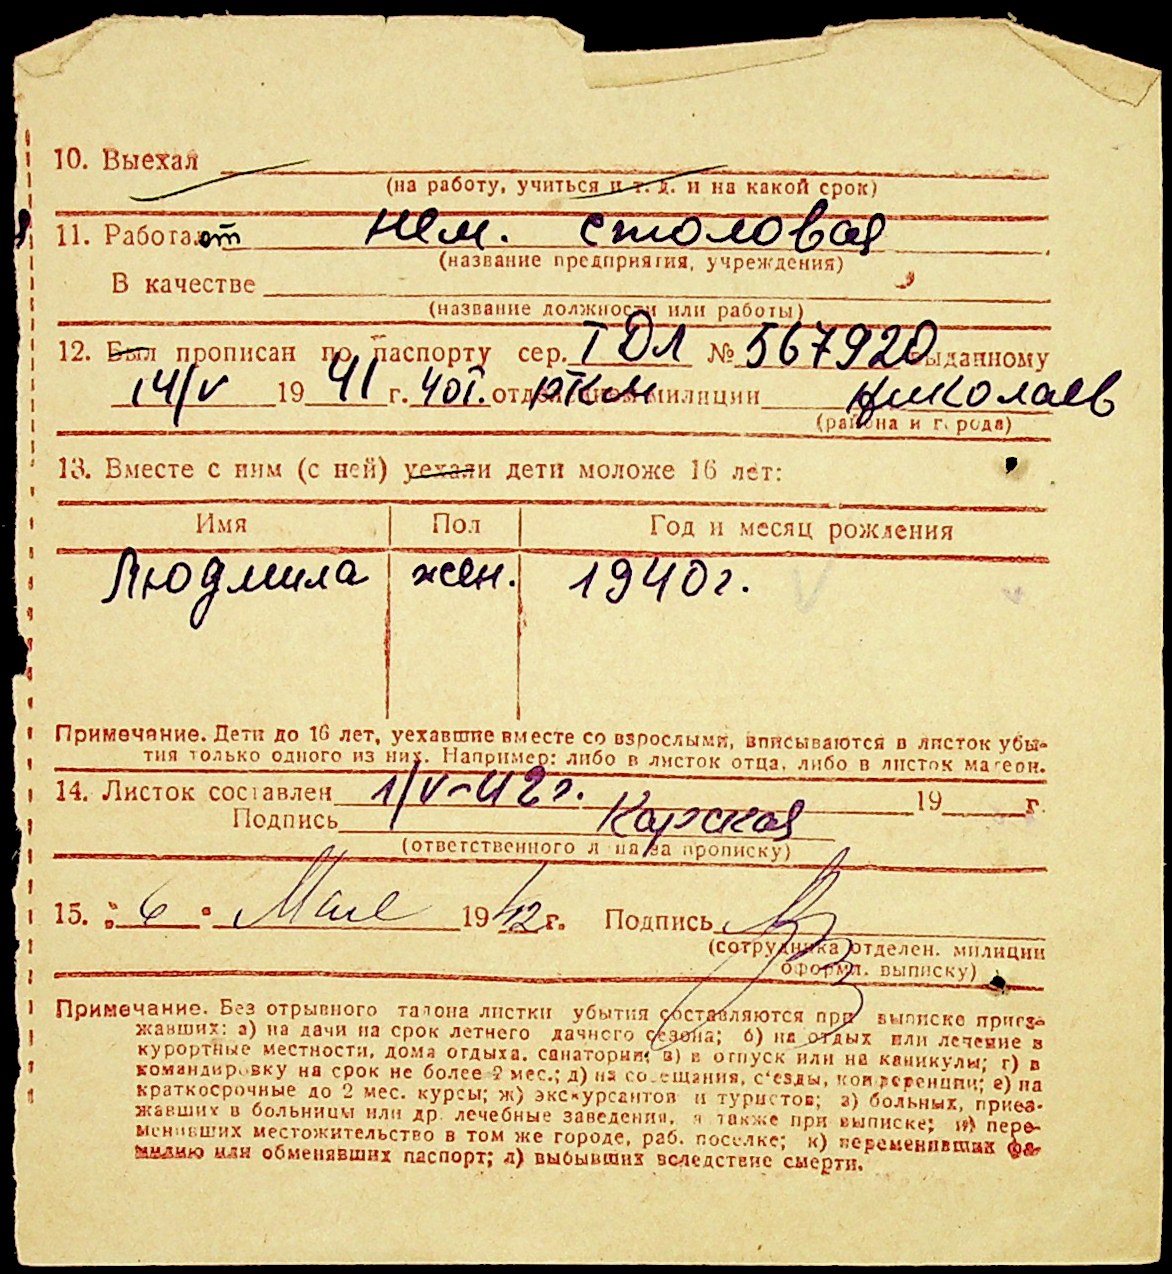 10. Выехал
(на работу, учиться и т. д. и на какой срок)
11. Работает нем. столовая
(название предприятия, учреждения)
В качестве
(название должности или работы)
12. Был прописан по паспорту сер. ТДЛ № 567920 выданному
14/V 19 41 г. 4 от. отделением РКМ милиции Николаев
(района и города)
13. Вместе с ним (с ней) уехали дети моложе 16 лет:
Имя Пол Год и месяц рождения
Людмила жен. 1940 г.
Примечание. Дети до 16 лет, уехавшие вместе со взрослыми, вписываются в листок убы-
тия только одного из них. Например: либо в листок отца, либо в листок матери.
14. Листок составлен 1/V-42 г. 19 г.
Подпись Карская
(ответственного лица за прописку)
15. "6" Мая 1942 г. Подпись
(сотрудника отделен. милиции
оформл. выписку)
Примечание. Без отрывного талона листки убытия составляются при выписке приез-
жавших: а) на дачи на срок летнего дачного сезона; б) на отдых или лечение в
курортные местности, дома отдыха, санатории; в) в отпуск или на каникулы; г) в
командировку на срок не более 2 мес.; д) на совещания, с'езды, конференции; е) на
краткосрочные до 2 мес. курсы; ж) экскурсантов и туристов; з) больных, приез-
жавших в больницы или др. лечебные заведения, а также при выписке; и) пере-
менивших местожительство в том же городе, раб. поселке; к) переменивших фа-
милию или обменявших паспорт; л) выбывших вследствие смерти.